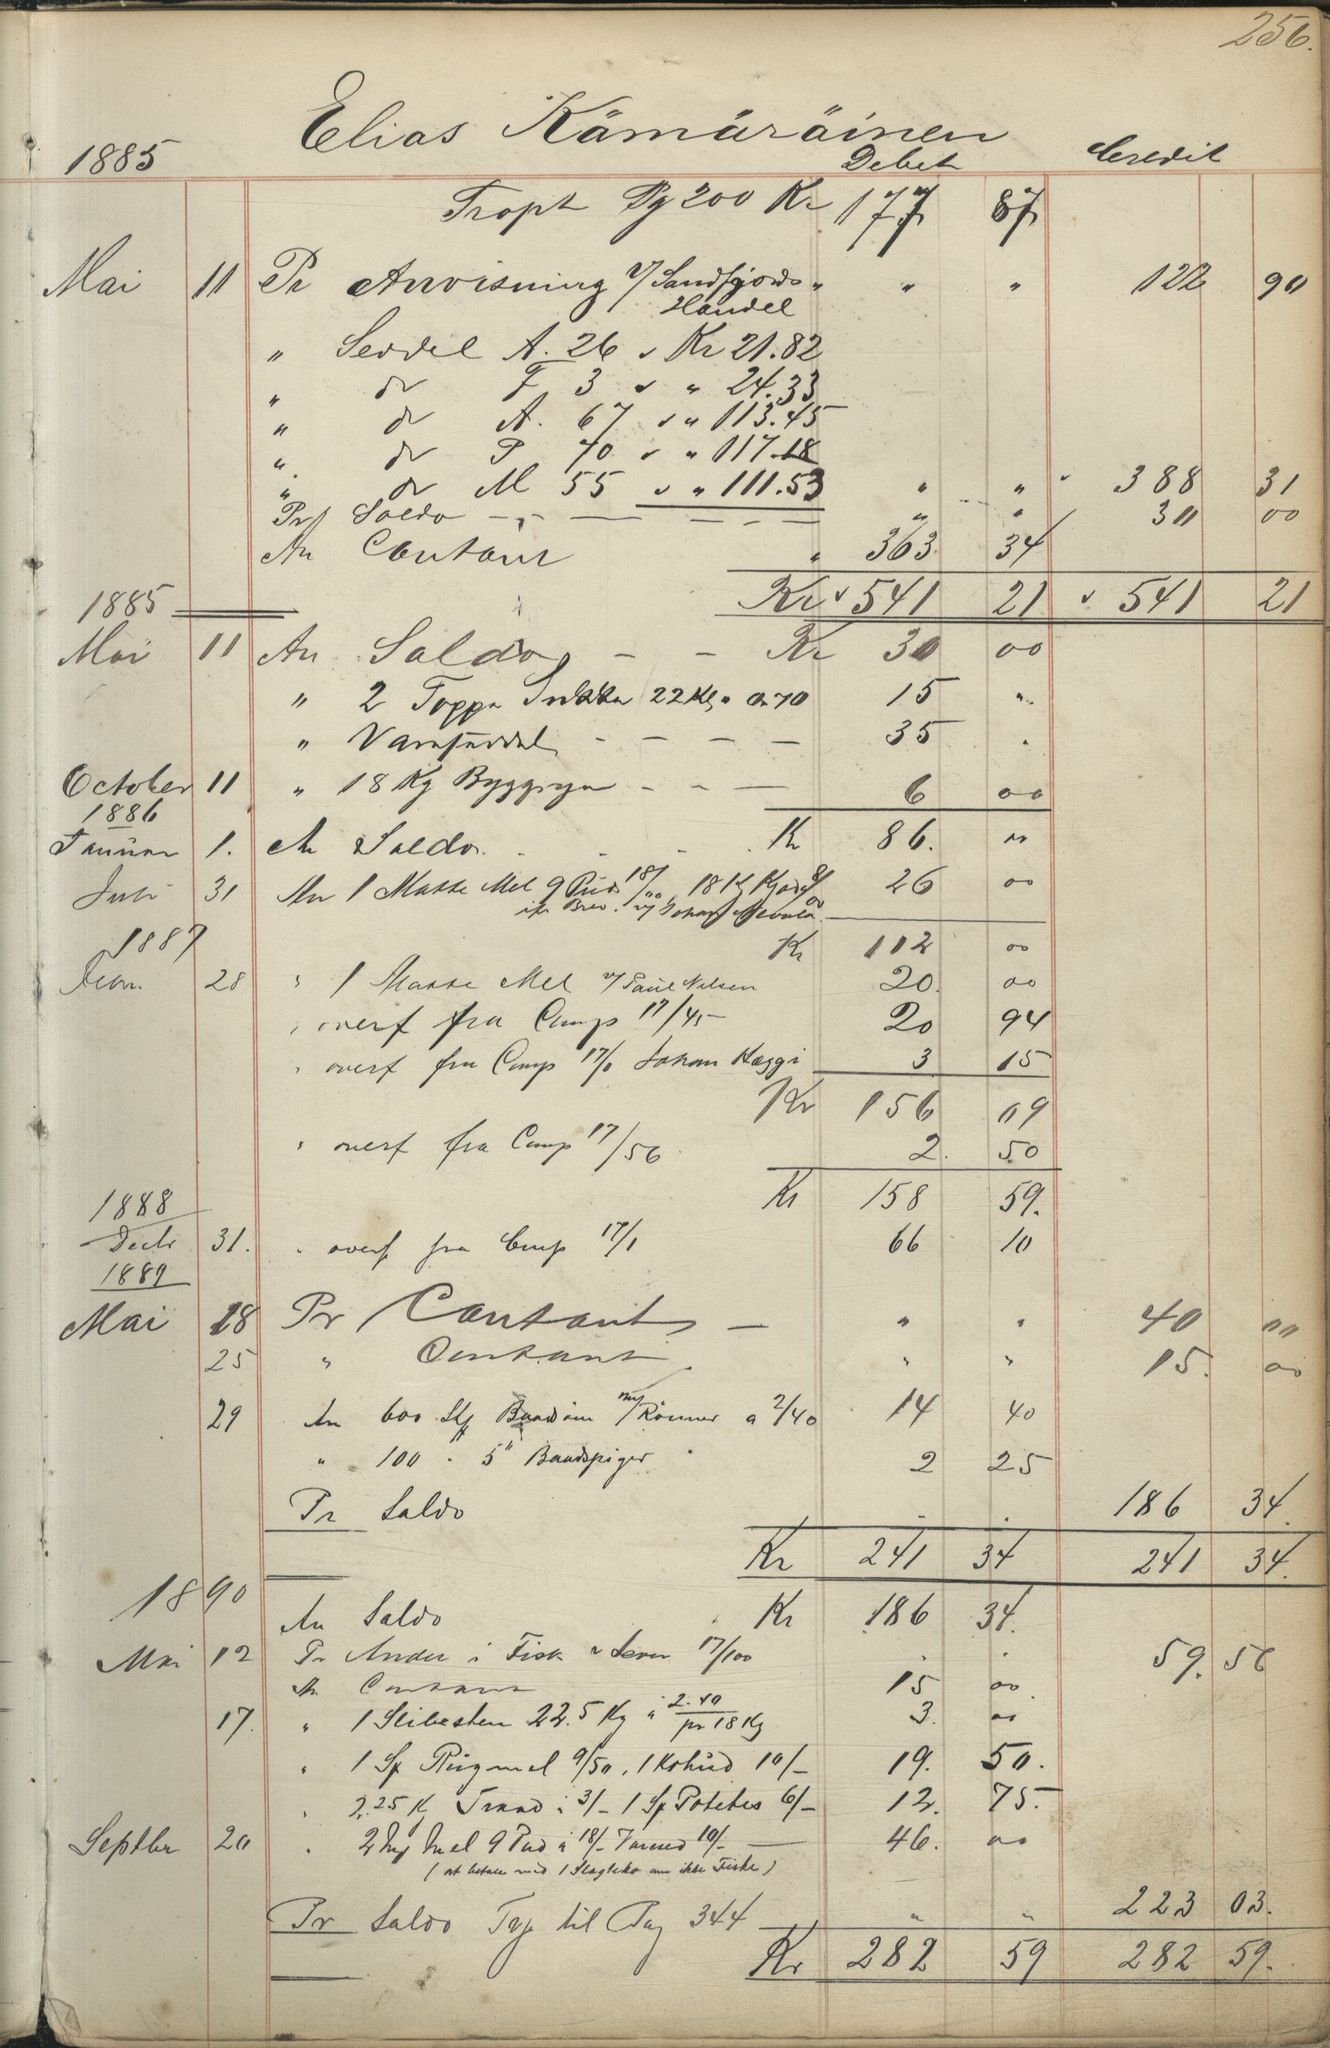 256.
Elias Kämäräinen
1885 Debet Credit
Tropt Pg 200 Kr 177 87
Mai 11 Pr Anvisning v/ Sandfjords " " " 122 90
Handel
" Seddel A. 26 Kr 21.82
" do F 3 " 24.33
" do A. 67 " 113.45
" do P 70 " 117.18
" do M 55 " 111.53 " " 388 31
Pr Saldo - - - - " " 30 00
An Contant " 363 34
Kr 541 21 541 21
1885
Mai 11 An Saldo - - Kr 30 00
" 2 Toppe Sukker 22 Kg a 70 15 "
" Vareseddel - - - - 35 "
October 11 " 18 Kg Byggryn - - - 6 00
1886
Januar 1. An Saldo Kr 86. 00
Juli 31 An 1 Matte Mel 9 Pud 18/00, 18 Kg 8/00 26 00
Brev v/ Johan
1887 Kr 112 00
28 " 1 Matte Mel v/ Paul Nilsen 20. 00
" overf fra Comp 17/45 20 94
" overf fra Comp 17/0 Johan Haggi 3 15
Kr 156 09
" overf fra Comp 17/56 2. 50
Kr 158 59.
1888
Decbr 31. " overf fra Comp 17/1 66 10
1889
Mai 18 Pr Contant - " " 40 00
25 " Contant " " 15. 00
29 An 600 Stk a 2/40 14 40
" 100 " 5" Baadspiger " 2 25
Pr Saldo . . 186 34.
Kr 241 34 241 34.
1890
An Saldo Kr 186 34.
Mai 12 Pr Andel i Fisk & Lever 17/100 . . 59. 56
An Contant 15 00
17. " 1 Slibesten 22.5 Kg a 2.40 3. 00
pr 18 Kg
" 1 Sk Rugmel 9/50, 1 Kohud 10/- 19. 50.
" 2.25 Kg a 3/- 1 Sk Potetes 6/- 12. 75.
Septbr 20 " 2 Mel 9 Pud a 18/- 10/- 46. 00
(at betale med 1 Slagteko om ikke Fiske)
Pr Saldo Trp til Pag 344 " " 223 03.
Kr 282 59 282 59.